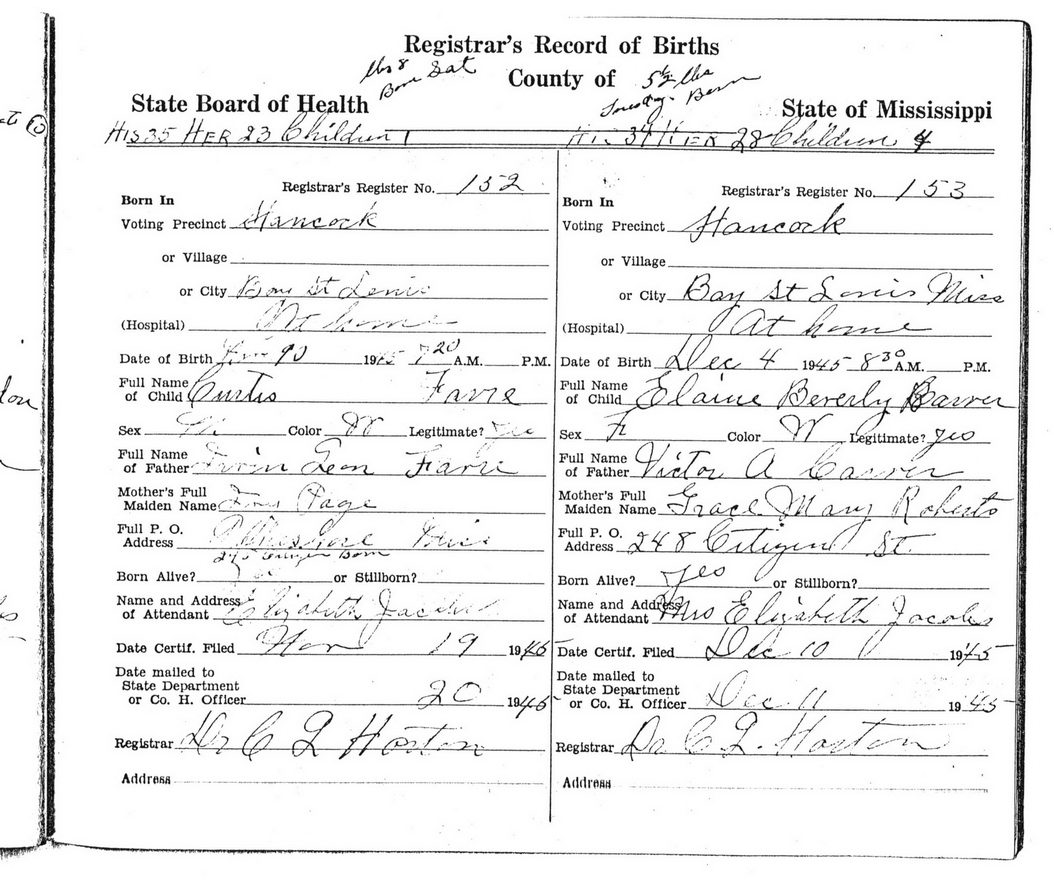 Registrar's Record of Births
lbs 8 Born Sat County of 5½ lbs Born
State Board of Health State of Mississippi
HIS 35 HER 23 Children 1
Registrar's Register No. 152
Born In
Voting Precinct Hancock
or Village
or City Bay St Louis
(Hospital) At home
Date of Birth 1945 7 20 A.M. P.M.
Full Name
of Child Curtis Favre
Sex M Color W Legitimate? yes
Full Name
of Father Leon Favre
Mother's Full
Maiden Name Page
Full P. O.
Address Miss
Born
Born Alive? or Stillborn?
Name and Address
of Attendant Elizabeth Jacobs
Date Certif. Filed 19 1945
Date mailed to
State Department
or Co. H. Officer 20 1945
Registrar Dr C L Horton
Address
HIS 39 HER 28 Children 4
Registrar's Register No. 153
Born In
Voting Precinct Hancock
or Village
or City Bay St Louis Miss
(Hospital) At home
Date of Birth Dec 4 1945 8 30 A.M. P.M.
Full Name
of Child Elaine Beverly Carver
Sex F Color W Legitimate? yes
Full Name
of Father Victor A Carver
Mother's Full
Maiden Name Grace Mary Roberts
Full P. O.
Address 248 Citizen St.
Born Alive? yes or Stillborn?
Name and Address
of Attendant Mrs Elizabeth Jacobs
Date Certif. Filed Dec 10 1945
Date mailed to
State Department
or Co. H. Officer Dec 11 1945
Registrar Dr C L. Horton
Address